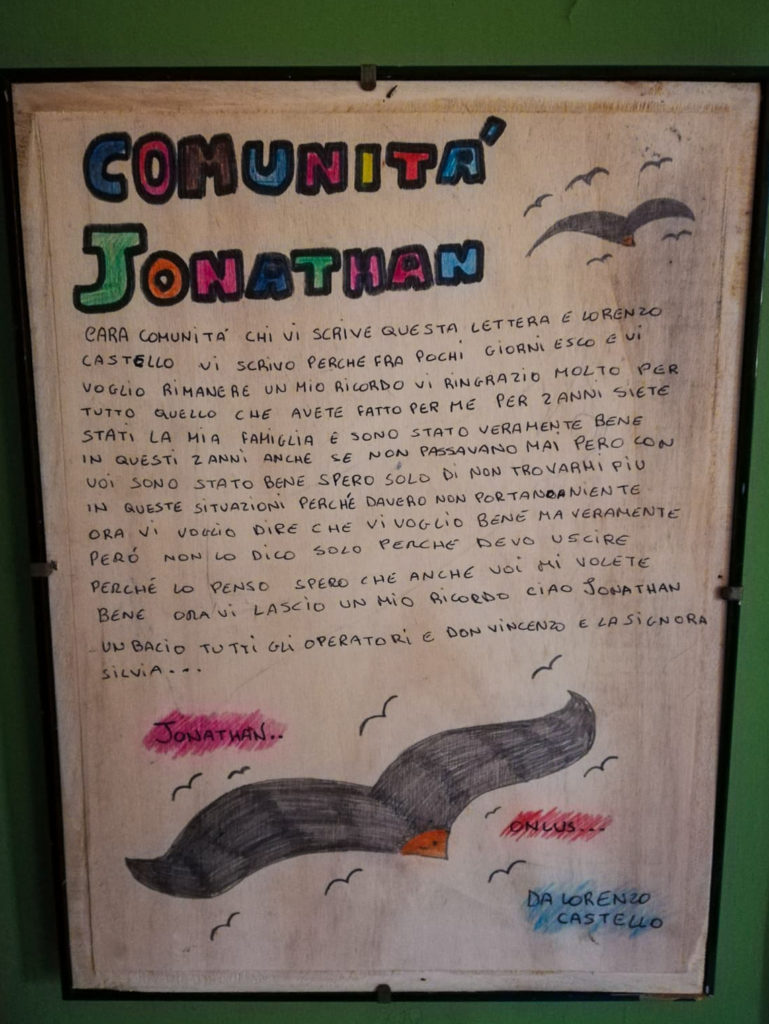 COMUNITÀ
JONATHAN
CARA COMUNITÀ CHI VI SCRIVE QUESTA LETTERA E LORENZO
CASTELLO VI SCRIVO PERCHE FRA POCHI GIORNI ESCO E VI
VOGLIO RIMANERE UN MIO RICORDO VI RINGRAZIO MOLTO PER
TUTTO QUELLO CHE AVETE FATTO PER ME PER 2 ANNI SIETE
STATI LA MIA FAMIGLIA E SONO STATO VERAMENTE BENE
IN QUESTI 2 ANNI ANCHE SE NON PASSAVANO MAI PERO CON
VOI SONO STATO BENE SPERO SOLO DI NON TROVARMI PIÙ
IN QUESTE SITUAZIONI PERCHÉ DAVERO NON PORTANO A NIENTE
ORA VI VOGLIO DIRE CHE VI VOGLIO BENE MA VERAMENTE
PERÓ NON LO DICO SOLO PERCHE DEVO USCIRE
PERCHÉ LO PENSO SPERO CHE ANCHE VOI MI VOLETE
BENE ORA VI LASCIO UN MIO RICORDO CIAO JONATHAN
UN BACIO TUTTI GLI OPERATORI E DON VINCENZO E LA SIGNORA
SILVIA...
JONATHAN..
ONLUS...
DA LORENZO
CASTELLO